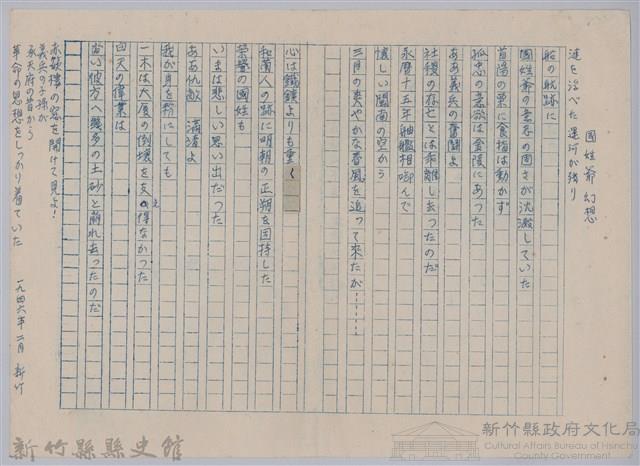 国姓爺幻想
蓮を浮べた運河が残り
船の航跡に
国姓爺の意志の固さが沈澱していた
首陽の粟に食指は動かず
孤忠の意欲は金陵にあった
ああ義兵の奮闘よ
社稷の存亡とは乖離し去ったのだ
永暦十五年舳艫相啣んで
懐しい閩南の空から
三月の爽やかな春風を追って来たが
心は鉄鎖よりも重く
和蘭人の跡に明朝の正朔を固持した
栄譽の国姓も
いまは悲しい思い出だった
ああ仇敵 満清よ
我が身を粉にしても
一木は大廈の倒壊を支え得なかった
回天の偉業は
尚い彼方へ幾多の土砂と崩れ去ったのだ
赤嵌樓の窓を開けて見よ！
義兵の子孫が
承天府の昔から
革命の思想をしっかり着ていた
一九四六年二月 新竹
新竹縣縣史館
新竹縣政府文化局
Cultural Affairs Bureau of Hsinchu
County Government